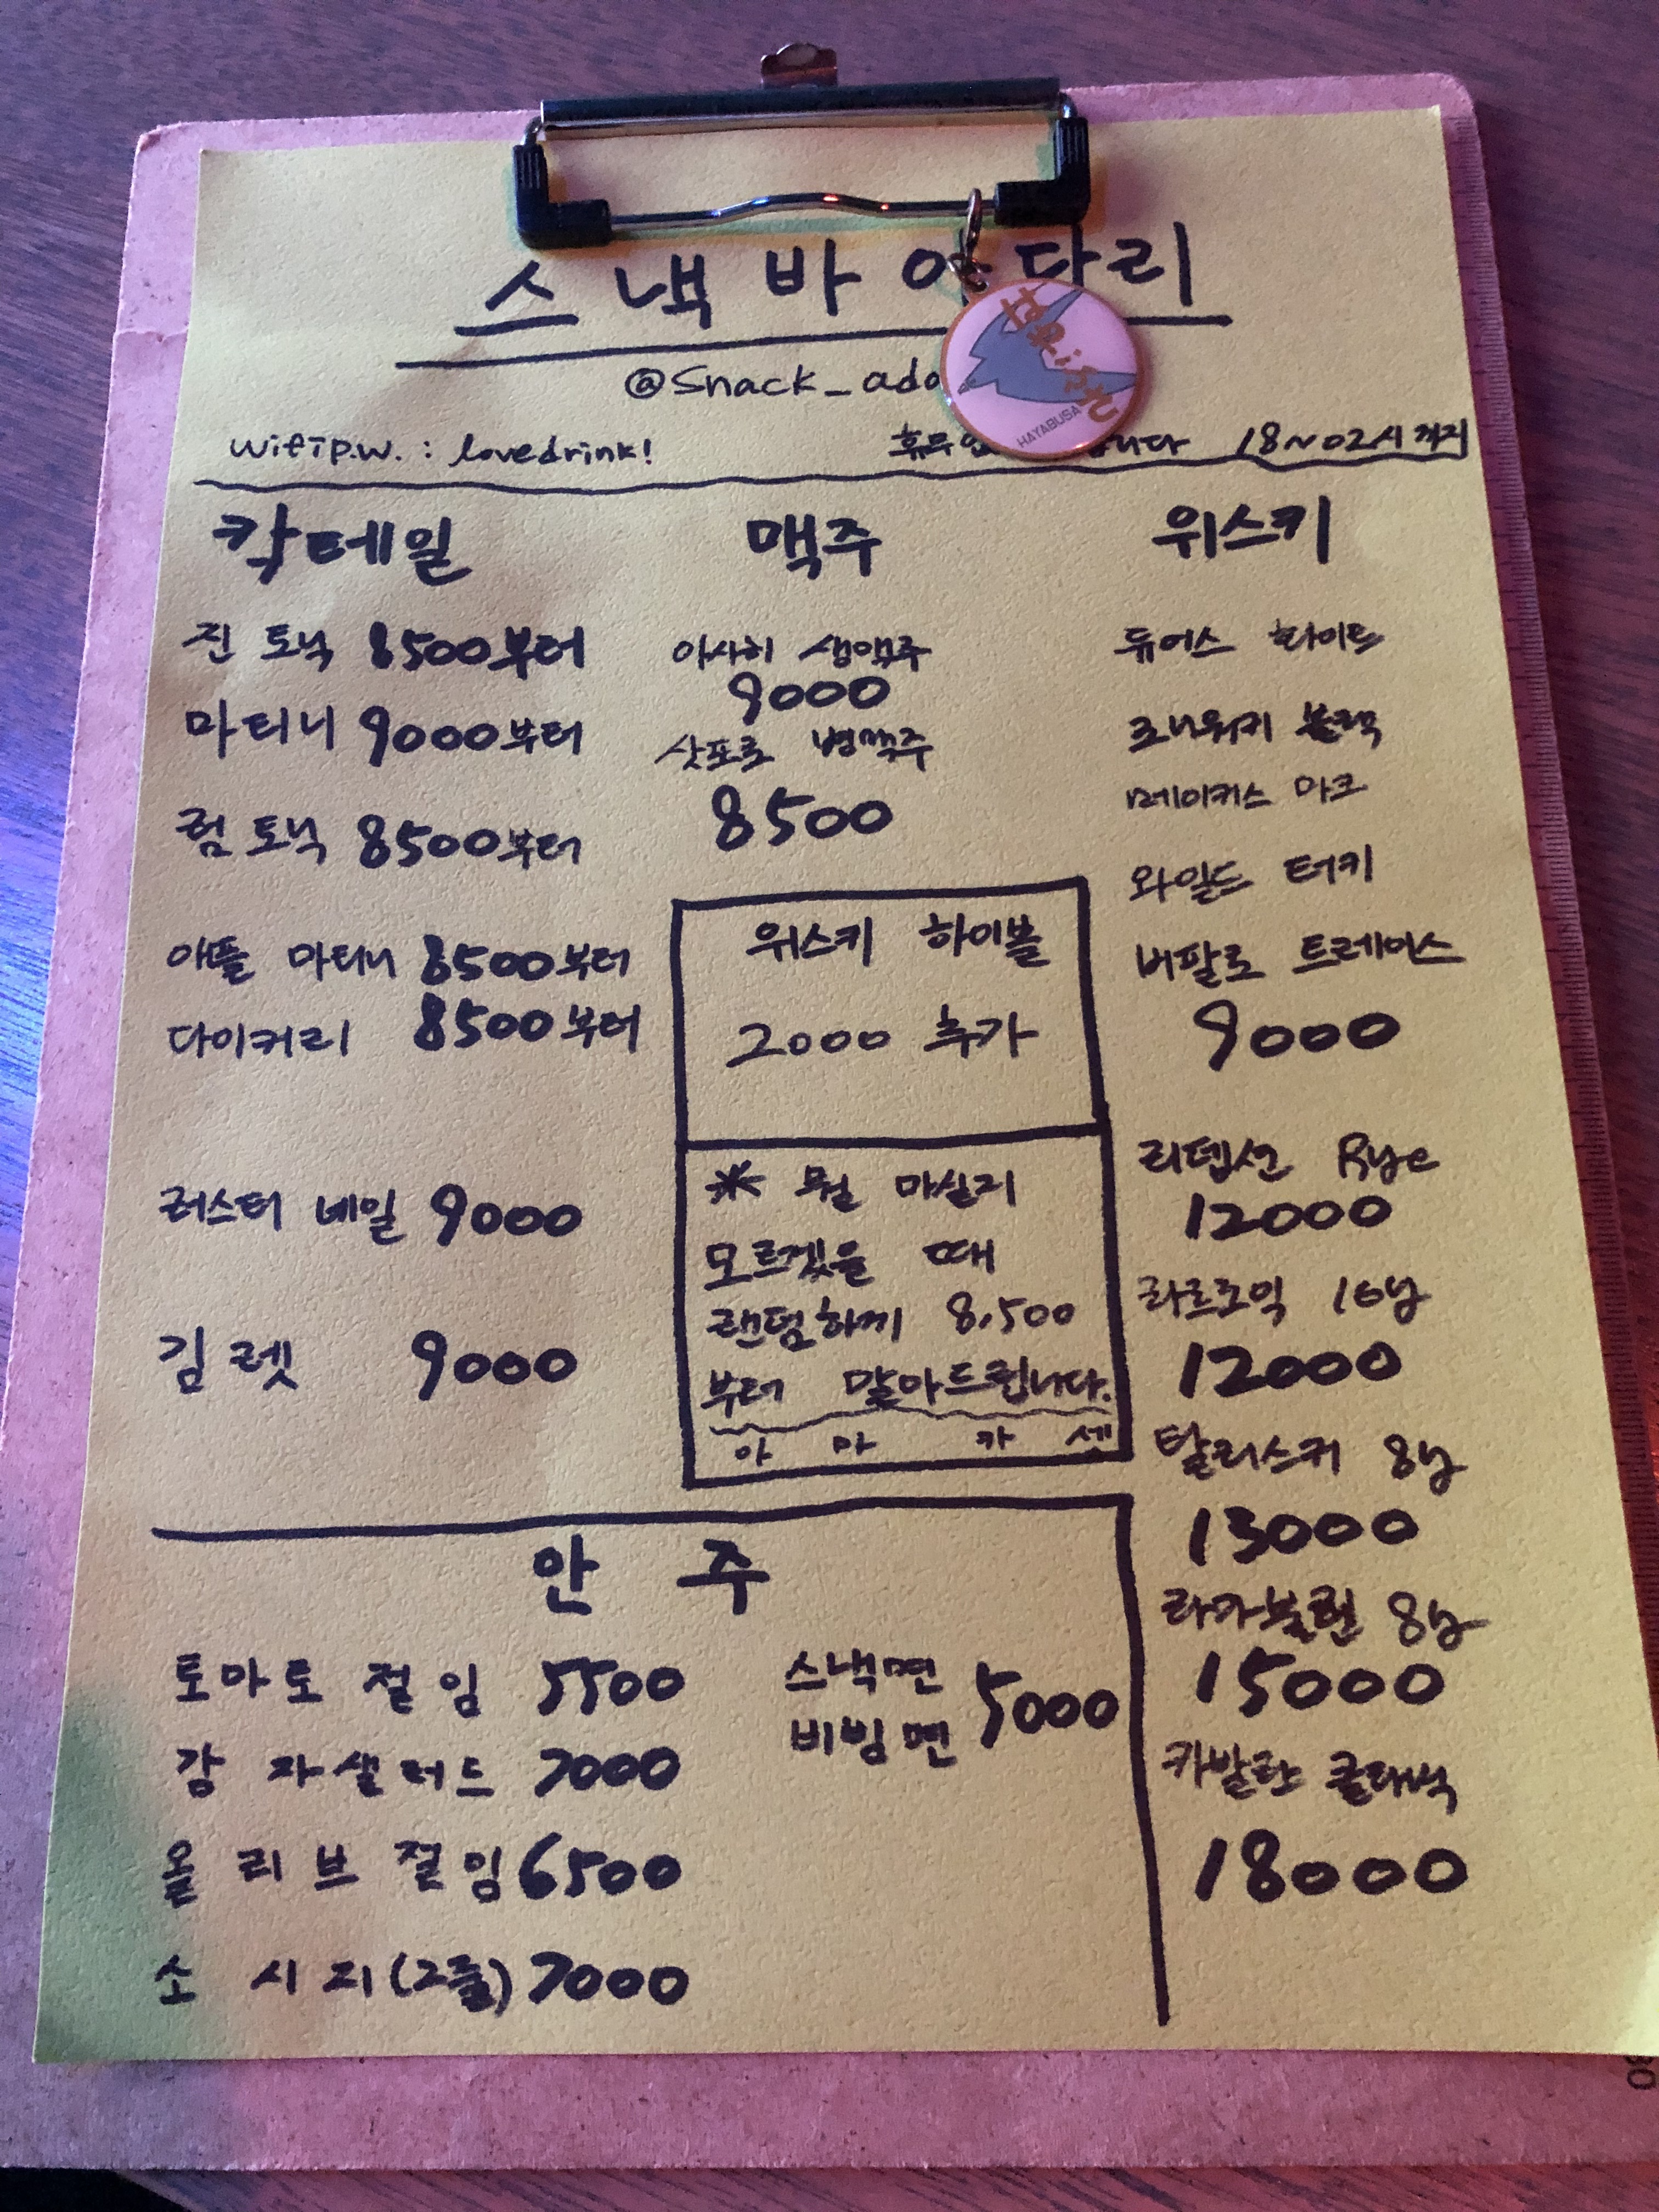 스낵바 다리
@Snack_ado
HAYABUSA
wifi p.w. : lovedrink!
18~02시까지
칵테일
진 토닉 8500부터
마티니 9000부터
럼 토닉 8500부터
애플 마티니 8500부터
다이커리 8500부터
러스티 네일 9000
김렛 9000
맥주
아사히 생맥주
9000
삿포로 병맥주
8500
위스키 하이볼
2000 추가
* 뭘 마실지
모르겠을 때
랜덤하게 8,500
부터 말아드립니다.
아 마 카 세
위스키
듀어스 화이트
조니워커 블랙
메이커스 마크
와일드 터키
버팔로 트레이스
9000
리뎀션 Rye
12000
라프로익 10y
12000
탈리스커 8y
13000
라가불린 8y
15000
카발란 클래식
18000
안주
토마토 절임 5500
감자샐러드 7000
올리브 절임 6500
소시지(2줄) 7000
스낵면
비빔면 5000